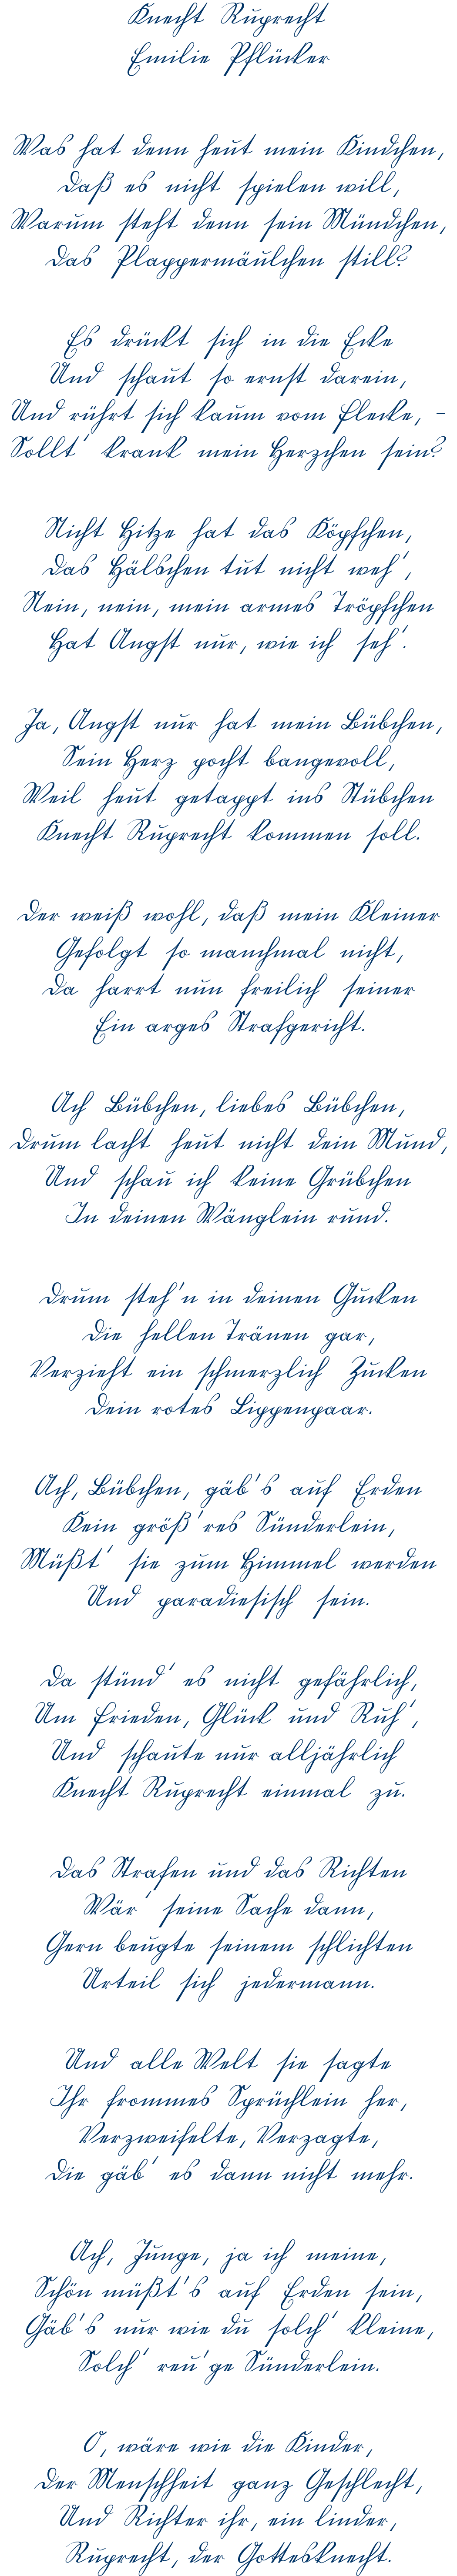 Knecht Ruprecht
Emilie Pflücker
Was hat denn heut mein Kindchen,
Daß es nicht spielen will,
Warum steht denn sein Mündchen,
Das Plappermäulchen still?
Es drückt sich in die Ecke
Und schaut so ernst darein,
Und rührt sich kaum vom Flecke, –
Sollt' krank mein Herzchen sein?
Nicht Hitze hat das Köpfchen,
Das Hälschen tut nicht weh',
Nein, nein, mein armes Tröpfchen
Hat Angst nur, wie ich seh'.
Ja, Angst nur hat mein Bübchen,
Sein Herz pocht bangevoll,
Weil heut getappt ins Stübchen
Knecht Ruprecht kommen soll.
Der weiß wohl, daß mein Kleiner
Gefolgt so manchmal nicht,
Da harrt nun freilich seiner
Ein arges Strafgericht.
Ach Bübchen, liebes Bübchen,
Drum lacht heut nicht dein Mund,
Und schau ich keine Grübchen
In deinen Wänglein rund.
Drum steh'n in deinen Gucken
Die hellen Tränen gar,
Verzieht ein schmerzlich Zucken
Dein rotes Lippenpaar.
Ach, Bübchen, gäb's auf Erden
Kein größ'res Sünderlein,
Müßt' sie zum Himmel werden
Und paradiesisch sein.
Da stünd' es nicht gefährlich,
Um Frieden, Glück und Ruh',
Und schaute nur alljährlich
Knecht Ruprecht einmal zu.
Das Strafen und das Richten
Wär' seine Sache dann,
Gern beugte seinem schlichten
Urteil sich jedermann.
Und alle Welt sie sagte
Ihr frommes Sprüchlein her,
Verzweifelte, Verzagte,
Die gäb' es dann nicht mehr.
Ach, Junge, ja ich meine,
Schön müßt's auf Erden sein,
Gäb's nur wie du solch' kleine,
Solch' reu'ge Sünderlein.
O, wäre wie die Kinder,
Der Menschheit ganz Geschlecht,
Und Richter ihr, ein linder,
Ruprecht, der Gottesknecht.